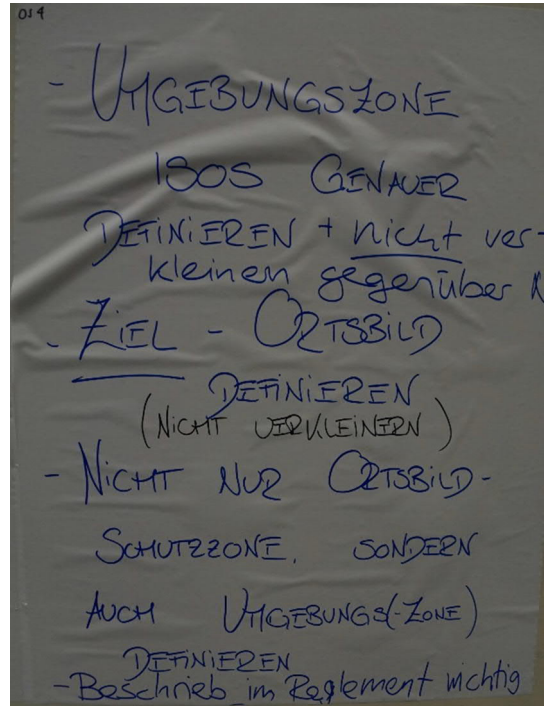 OS 4
- UMGEBUNGSZONE
ISOS GENAUER
DEFINIEREN + nicht ver-
kleinern gegenüber
- ZIEL - ORTSBILD
DEFINIEREN
(NICHT VERKLEINERN)
- NICHT NUR ORTSBILD-
SCHUTZZONE, SONDERN
AUCH UMGEBUNGS(-ZONE)
DEFINIEREN
- Beschrieb im Reglement wichtig